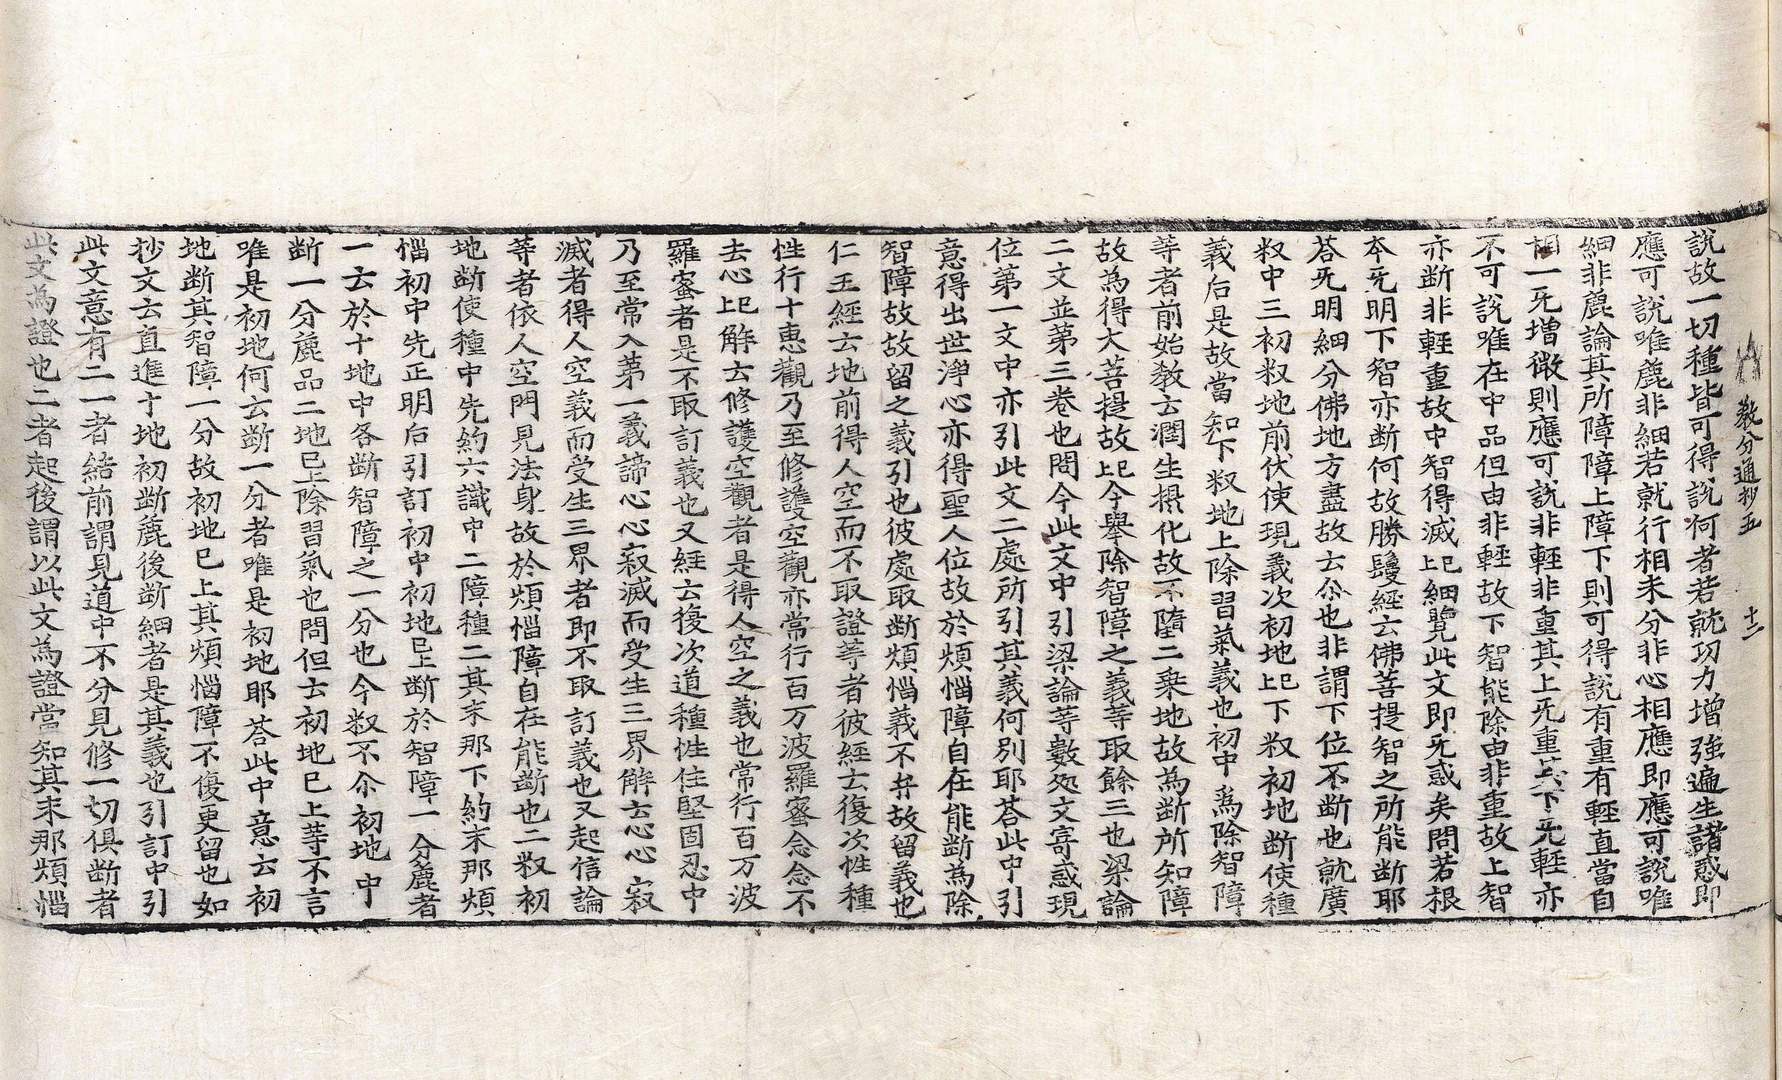 教分通抄五　十二
說故一切種皆可得說何者若就功力增強遍生諸惑即
應可說唯麁非細若就行相未分非心相應即應可說唯
細非麁論其所障障上障下則可得說有重有輕直當自
相一旡增微則應可說非輕非重其上旡重其下旡輕亦
不可說唯在中品但由非輕故下智能除由非重故上智
亦断非輕重故中智得滅㔾細覽此文即旡惑矣問若根
本旡明下智亦断何故勝鬘經云佛菩提智之所能断耶
答旡明細分佛地方盡故云尒也非謂下位不断也就廣
叙中三初叙地前伏使現義次初地㔾下叙初地断使種
義后是故當知下叙地上除習氣義也初中爲除智障
等者前始教云潤生摂化故不墮二乗地故為断所知障
故為得大菩提故㔾今舉除智障之義等取餘三也梁論
二文並第三卷也問今此文中引梁論等數処文寄惑現
位第一文中亦引此文二處所引其義何別耶答此中引
意得出世淨心亦得聖人位故於煩惱障自在能断為除
智障故故留之義引也彼處取断煩惱義不弁故留義也
仁王經云地前得人空而不取證等者彼經云復次性種
性行十惠觀乃至修護空觀亦常行百万波羅蜜念念不
去心㔾解云修護空觀者是得人空之義也常行百万波
羅蜜者是不取訂義也又經云復次道種性住堅固忍中
乃至常入苐一義諦心心寂滅而受生三界解云心心寂
滅者得人空義而受生三界者即不取訂義也又起信論
等者依人空門見法身故於煩惱障自在能断也二叙初
地断使種中先約六識中二障種二其末那下約末那煩
惱初中先正明后引訂初中初地㔾上断於智障一分麁者
一云於十地中各断智障之一分也今叙不尒初地中
断一分麁品二地㔾上除習氣也問但云初地巳上等不言
唯是初地何云断一分者唯是初地耶答此中意云初
地断其智障一分故初地巳上其煩惱障不復更留也如
抄文云直進十地初断麁後断細者是其義也引訂中引
此文意有二一者結前謂見道中不分見修一切俱断者
此文為證也二者起後謂以此文為證當知其末那煩惱